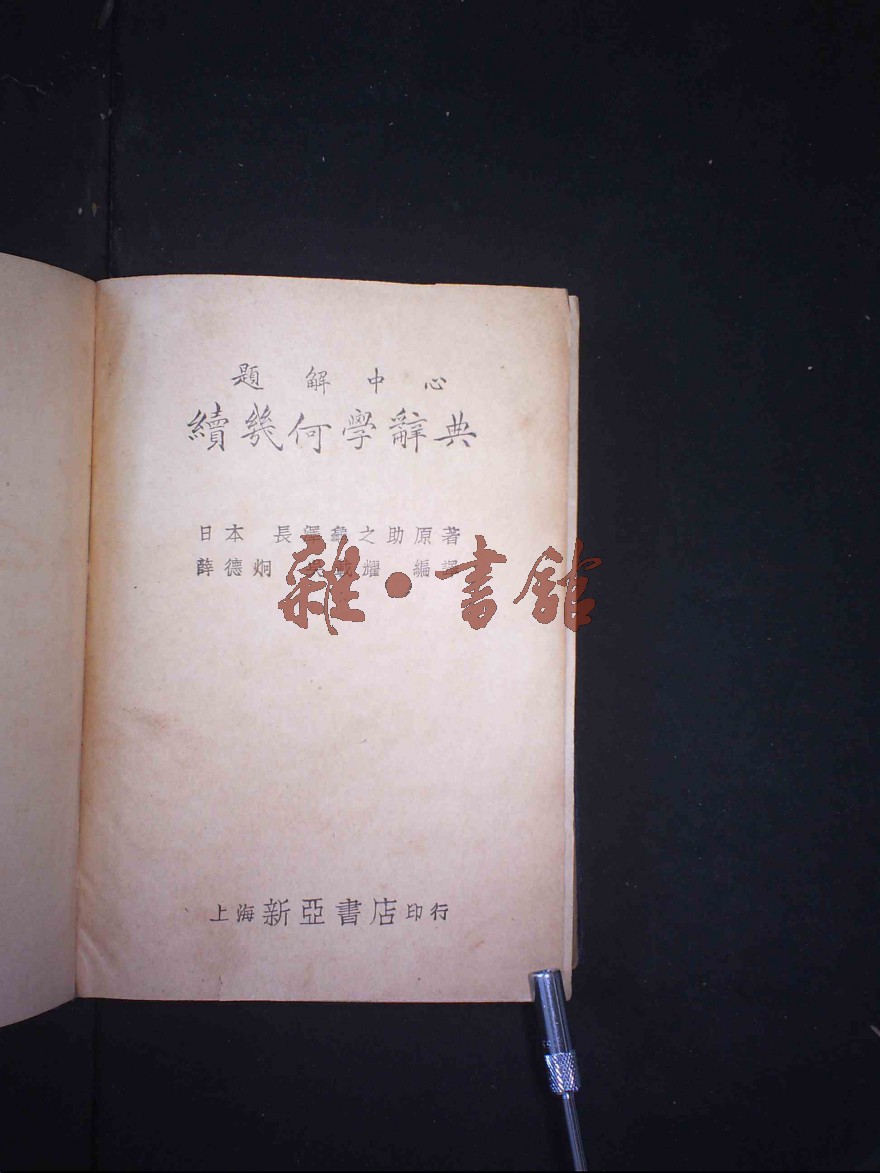 題解中心
續幾何學辭典
日本 長澤龜之助原著
薛德炯 吳載耀 編譯
雜·書館
上海新亞書店印行